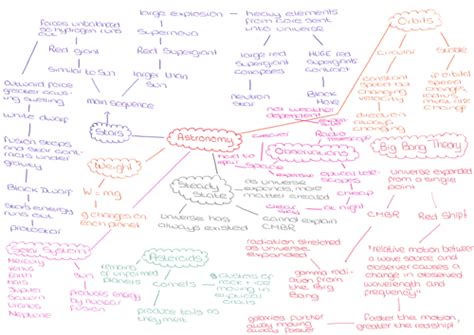 forces unbalanced
as hydrogen runs
out
Red giant
similar to sun
outward force
greater causing
swelling
white dwarf
fusion stops
and star contracts
under
gravity
Black Dwarf
stars energy
runs out
protostar
main sequence
Stars
large explosion
Supernova
Red Supergiant
larger than
sun
heavy elements
from core sent
into universe
large red
supergiant
collapses
neutron
star
HUGE red
supergiants
contract
Black
Hole
Astronomy
Orbits
circular
constant
speed but
changing
velocity
direction
always
changing
stable
if orbital
speed
changes,
radius
must also
change
not weather
dependent
Radio
telescope
Observations
optical telescopes
cheap
at night
Big Bang Theory
universe expanded
from a single
point
CMBR
Red Shift
radiation stretched
as universe expanded
gamma radiation
from the
Big
Bang
"relative motion between
a wave source and
observer causes a
change in observed
wavelength and
frequency"
faster the motion,
greater the redshift
galaxies further
away moving
away faster
Steady
State
as universe
expands, more
matter created
cannot explain
CMBR
universe has
always existed
Weight
W = mg
g changes on
each planet
Solar System
Mercury
Venus
Earth
Mars
Jupiter
Saturn
Uranus
Neptune
Sun
produces energy
by nuclear
fusion
Asteroids
remains
of
unformed
planets
comets
produce tails as
they melt